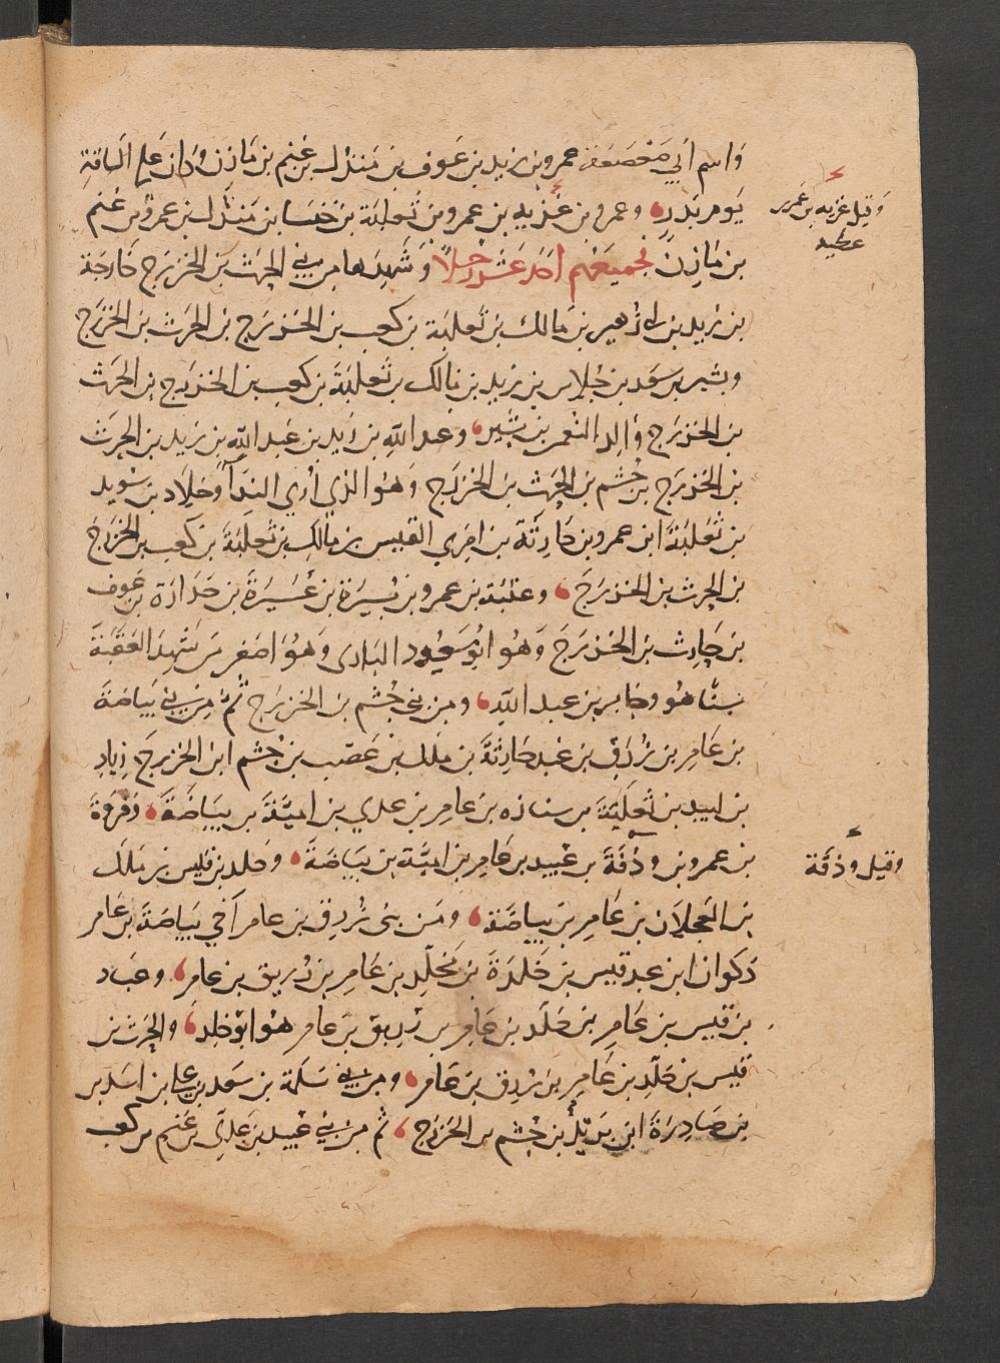 واسم ابي صعصعة عمرو بن زيد بن عوف بن منذل بن غنم بن مازن وكان علي الساقة
يوم بدر وعمرو بن غزيه بن عمرو بن ثعلبة بن خنسا بن منذل بن عمرو بن غنم
وقيل غزيه بن عمرو
عطيه
بن مازن فجميعهم احد عشر رجلا وشهدها من بني الحرث بن الخزرج خارجة
بن زيد بن ابي زهير بن مالك بن ثعلبة بن كعب بن الخزرج بن الحرث بن الخزرج
وبشير بن سعد بن جلاس بن زيد بن مالك بن ثعلبة بن كعب بن الخزرج بن الحرث
بن الخزرج والد النعمن بن بشير وعبد الله بن زيد بن عبد الله بن زيد بن الحرث
بن الخزرج بن جشم بن الحرث بن الخزرج وهو الذي اري الندا وخلاد بن سويد
بن ثعلبة ابن عمرو بن حارثة بن امري القيس بن مالك بن ثعلبة بن كعب بن الخزرج
بن الحرث بن الخزرج وعقبة بن عمرو بن يسيرة بن عسيرة بن جدارة بن عوف
بن حارث بن الخزرج وهو ابو مسعود البدرى وهو اصغر من شهد العقبة
سنا هو وجابر بن عبد الله ومن بني جشم بن الخزرج ثم من بني بياضة
بن عامر بن زريق بن عبد حارثة بن ملك بن غضب بن جشم ابن الخزرج زياد
بن لبيد بن ثعلبة بن سنان بن عامر بن عدي بن امية بن بياضة وفروة
بن عمرو بن وذفة بن عبيد بن عامر بن امية بن بياضة وخلد بن قيس بن ملك
وقيل وذقة
بن العجلان بن عامر بن بياضة ومن بنى زريق بن عامر اخي بياضة بن عامر
ذكوان ابن عبد قيس بن خلدة بن مخلد بن عامر بن زريق بن عامر وعباد
بن قيس بن عامر بن خلد بن عامر بن زريق بن عامر هو ابو خلد والحرث بن
قيس بن خلد بن عامر بن زريق بن عامر ومن بني سلمة بن سعد بن علي بن اسد بن
بن صادرة ابن يزيد بن جشم بن الخزرج ثم من بني عبيد بن عدي بن غنم بن كعب